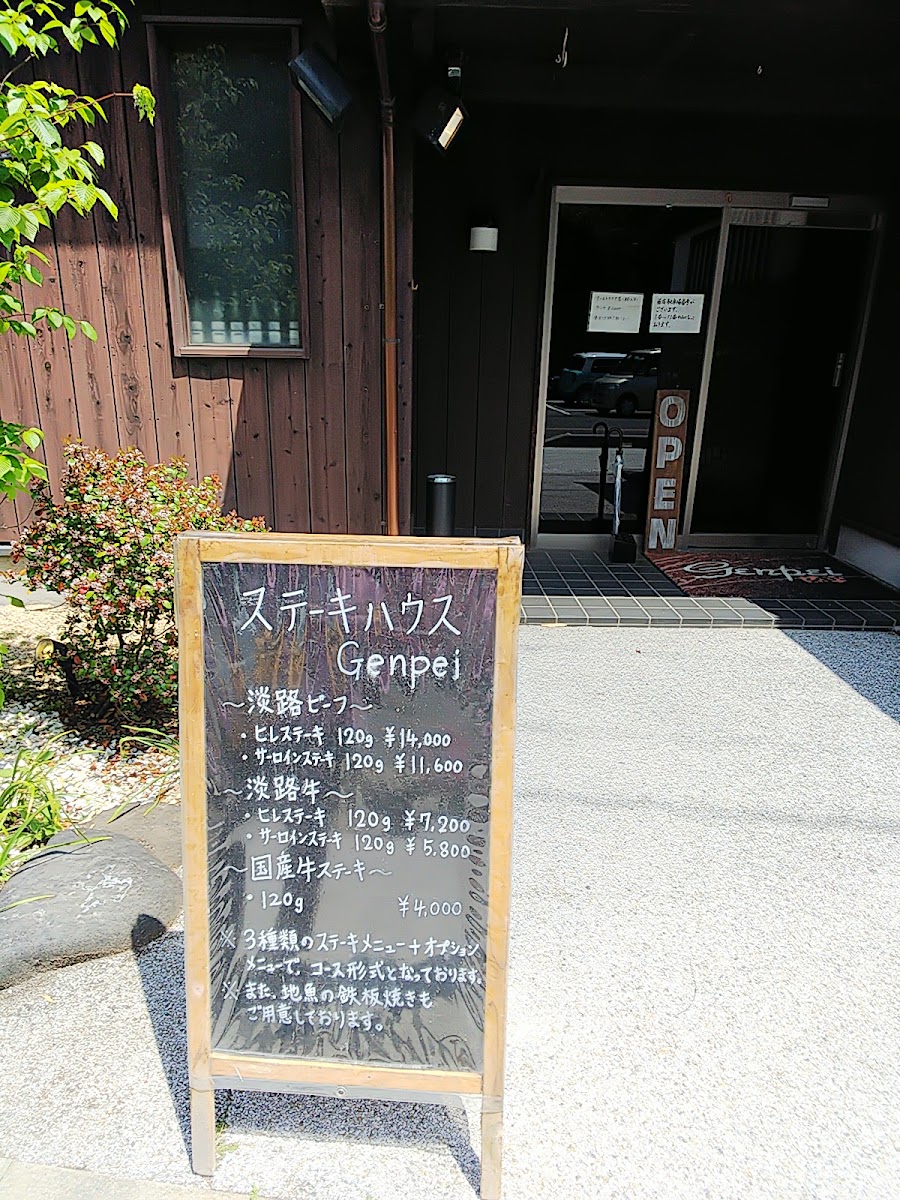 ステーキハウス
Genpei
～淡路ビーフ～
・ヒレステーキ 120g ¥14,000
・サーロインステーキ 120g ¥11,600
～淡路牛～
・ヒレステーキ 120g ¥7,200
・サーロインステーキ 120g ¥5,800
～国産牛ステーキ～
・120g ¥4,000
※3種類のステーキメニュー+オプション
メニューで、コース形式となっております。
※また、地魚の鉄板焼きも
ご用意しております。
OPEN
Genpei
ございます。